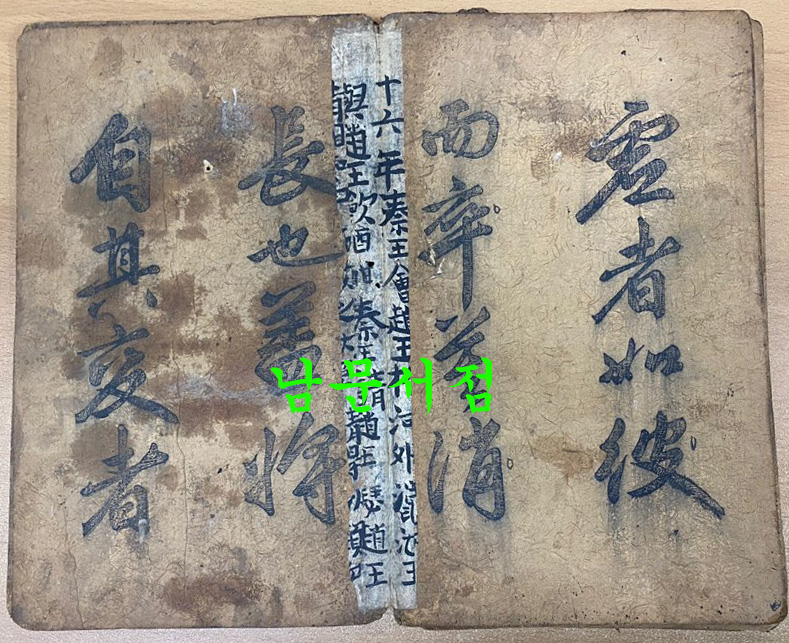 虛者如彼
而卒莫消
十六年秦王會趙王於河外澠池王
與趙王飮酒酣秦王請趙王鼓瑟趙王
長也蓋將
自其變者
남문서점